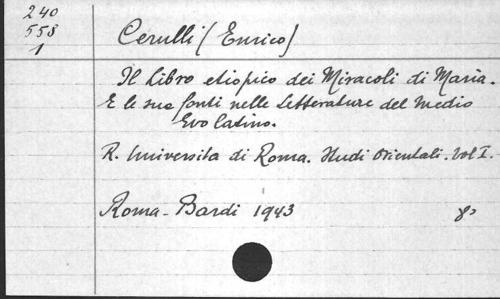 240
558
1
Cerulli (Enrico)
Il Libro etiopico dei Miracoli di Maria.
E le sue fonti nelle Letterature del Medio
Evo Latino.
R. Universita di Roma. Studi Orientali. Vol I.
Roma - Bardi 1943 8º